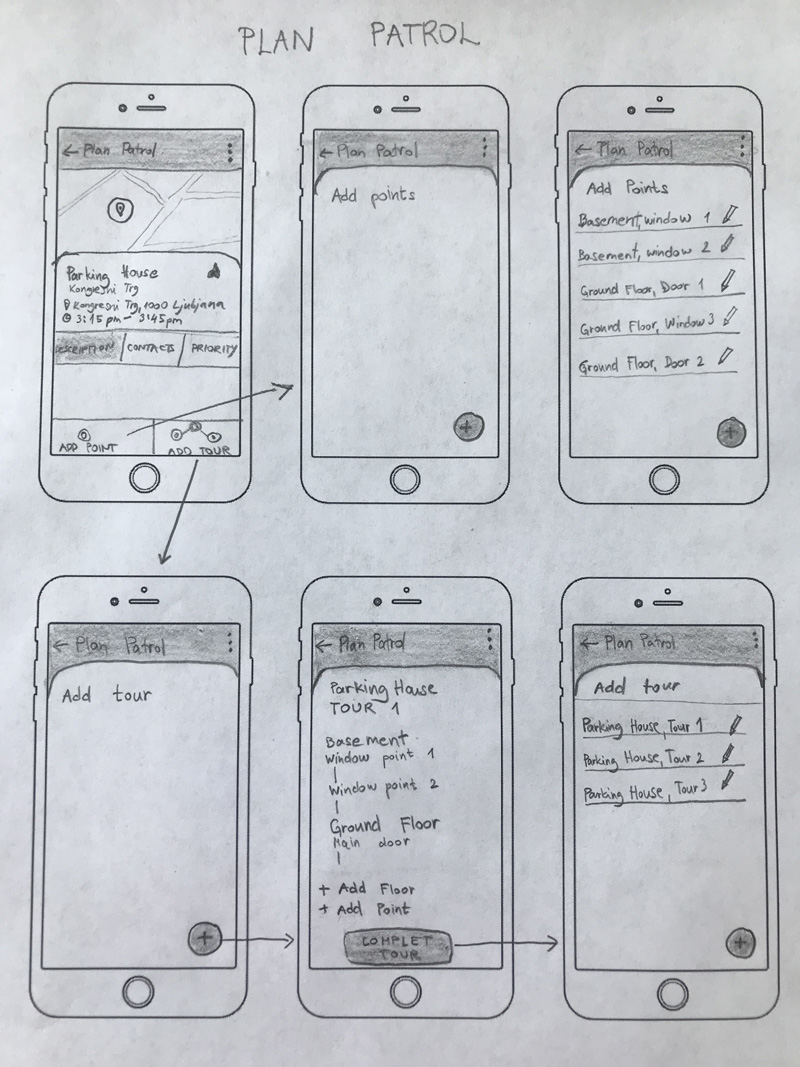 PLAN PATROL
← Plan Patrol
Parking House
Kongresni Trg
Kongresni Trg, 1000 Ljubjana
3:15 pm - 3:45pm
DESCRIPTION
CONTACTS
PRIORITY
ADD POINT
ADD TOUR
← Plan Patrol
Add points
+
← Plan Patrol
Add Points
Basement, window 1
Basement, window 2
Ground Floor, Door 1
Ground Floor, Window 3
Ground Floor, Door 2
+
← Plan Patrol
Add tour
+
← Plan Patrol
Parking House
TOUR 1
Basement
Window point 1
Window point 2
Ground Floor
Main door
+ Add Floor
+ Add Point
COMPLET
TOUR
← Plan Patrol
Add tour
Parking House, Tour 1
Parking House, Tour 2
Parking House, Tour 3
+